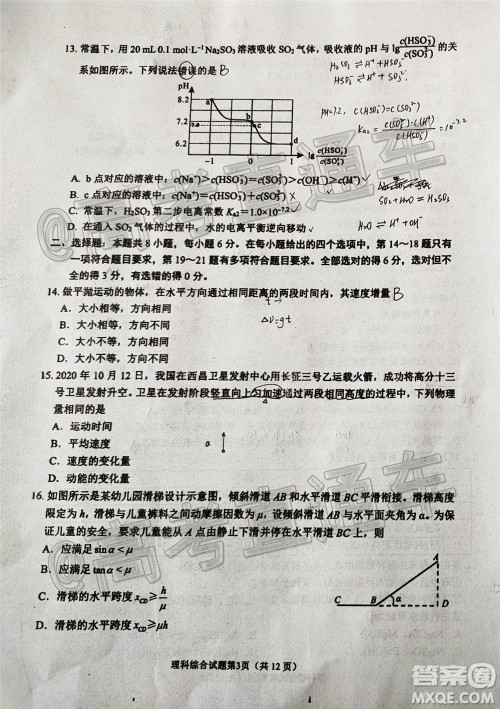 13. 常温下，用 20 mL 0.1 mol·L⁻¹Na₂SO₃ 溶液吸收 SO₂ 气体，吸收液的 pH 与 lg c(HSO₃⁻)/c(SO₃²⁻) 的关
系如图所示。下列说法错误的是 B
H₂SO₃ ⇌ H⁺+HSO₃⁻
HSO₃⁻ ⇌ H⁺+SO₃²⁻
pH
8.2
7.0
7.2
6.2
a
b
c
d
-1
0
1
lg c(HSO₃⁻)/c(SO₃²⁻)
pH=7.2, c(HSO₃⁻)=c(SO₃²⁻)
Ka₂ = c(SO₃²⁻)·c(H⁺)/c(HSO₃⁻) = 10⁻⁷·²
A. b 点对应的溶液中：c(Na⁺)>c(HSO₃⁻)=c(SO₃²⁻)>c(OH⁻)>c(H⁺)
B. c 点对应的溶液中：c(Na⁺)=c(HSO₃⁻)+c(SO₃²⁻)
C. 常温下，H₂SO₃ 第二步电离常数 Kₐ₂=1.0×10⁻⁷·²
SO₂+H₂O
D. 在通入 SO₂ 气体的过程中，水的电离平衡逆向移动
H₂O ⇌ H⁺+OH⁻
二、选择题：本题共 8 小题，每小题 6 分。在每小题给出的四个选项中，第 14～18 题只有
一项符合题目要求，第 19～21 题有多项符合题目要求。全部选对的得 6 分，选对但不
全的得 3 分，有选错的得 0 分。
14. 做平抛运动的物体，在水平方向通过相同距离的两段时间内，其速度增量 B
A. 大小相等，方向相同
Δv=gt
B. 大小不等，方向相同
C. 大小相等，方向不同
D. 大小不等，方向不同
15. 2020 年 10 月 12 日，我国在西昌卫星发射中心用长征三号乙运载火箭，成功将高分十三
号卫星发射升空。卫星在发射阶段竖直向上匀加速通过两段相同高度的过程中，下列物理
量相同的是
A. 运动时间
B. 平均速度
a
C. 速度的变化量
D. 动能的变化量
16. 如图所示是某幼儿园滑梯设计示意图，倾斜滑道 AB 和水平滑道 BC 平滑连接。滑梯高度
限定为 h，滑梯与儿童裤料之间动摩擦因数为 μ，倾斜滑道 AB 与水平面夹角为 α。为保
证儿童的安全，要求儿童能从 A 点由静止下滑并停在水平滑道 BC 上，则
A. 应满足 sin α < μ
B. 应满足 tan α < μ
C. 滑梯的水平跨度 x_CD ≥ h/μ
D. 滑梯的水平跨度 x_CD ≥ μh
A
α
C
B
D
理科综合试题第3页（共 12 页）
@高考直通车
@高考直通车
答案圈
MXQE.COM